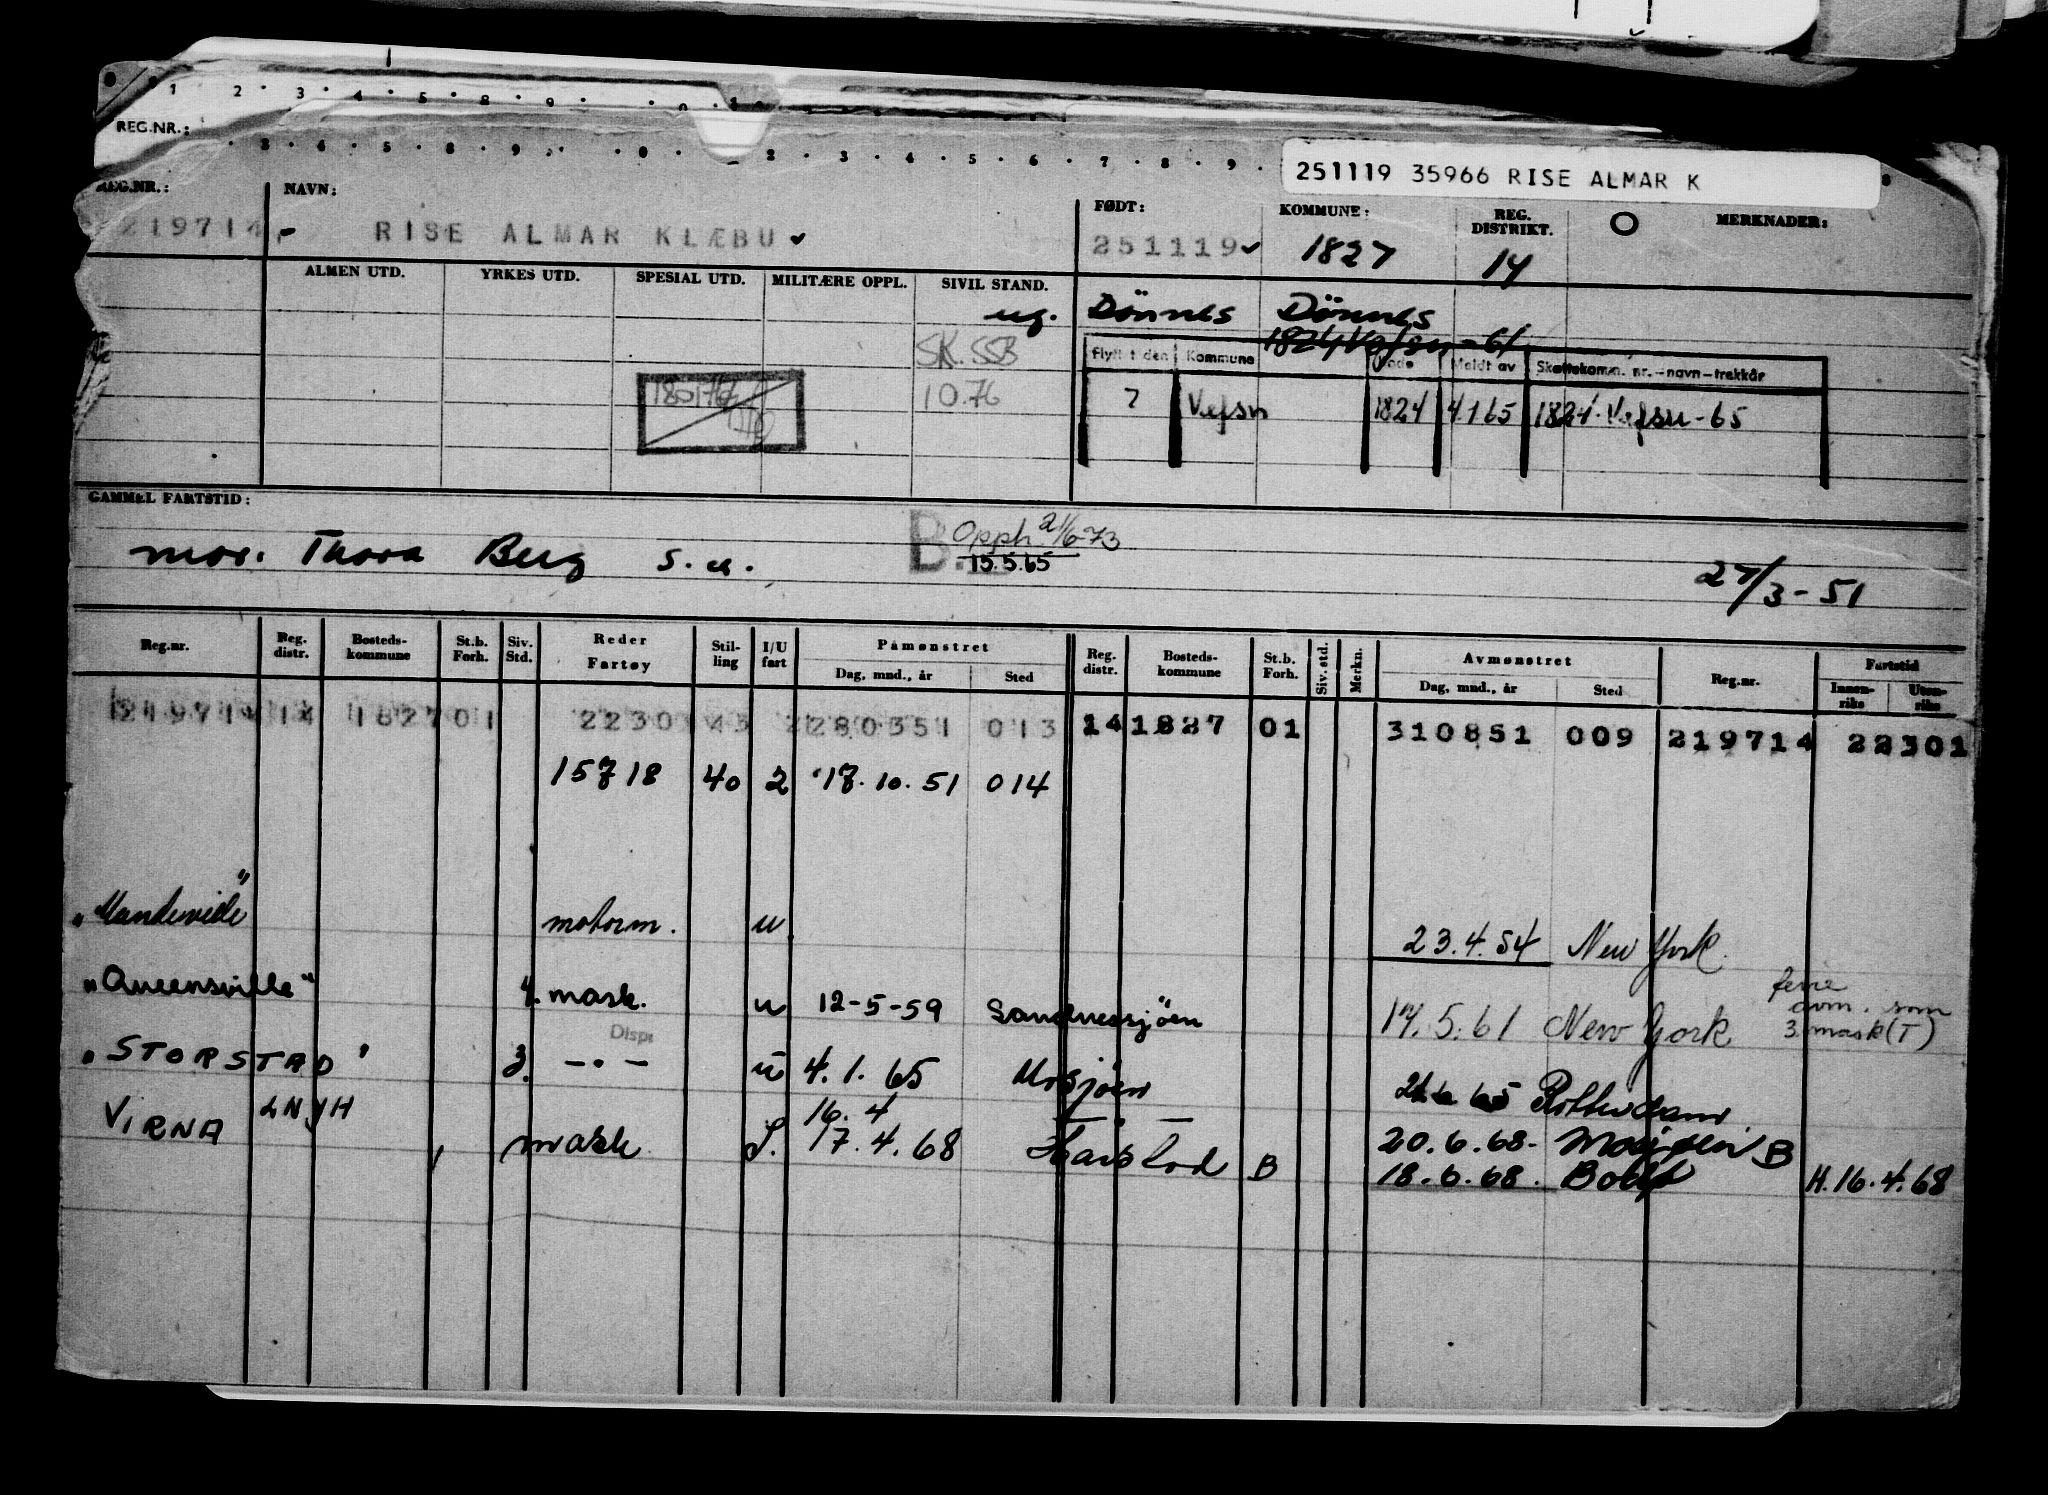 1 2 3 4 5 8 9 0 10
REG.NR.:
3 4 5 8 9 0 2 3 4 5 6 7 8 9
251119 35966 RISE ALMAR K
REG.NR.: NAVN: FØDT: KOMMUNE: REG. DISTRIKT. MERKNADER:
219714 RISE ALMAR KLÆBU 251119 1827 14
ALMEN UTD. YRKES UTD. SPESIAL UTD. MILITÆRE OPPL. SIVIL STAND.
ug. Dönnes Dönnes
SK. SSB 1824 Vefsn - 61
Flytt t den Kommune Kode Meldt av Skattekomm. nr.-navn-trekkår
10.76 ? Vefsn 1824 4.1 65 1824 Vefsn - 65
GAMMEL FARTSTID:
B. Opph 21/6-73
mor. Thora Berg s. a. 15.5.65
27/3-51
Reg.nr. Reg. distr. Bosteds-kommune St.b. Forh. Siv. Std. Reder Fartøy Stil-ling I/U fart Påmønstret Reg. distr. Bosteds-kommune St.b. Forh. Siv. std. Merkn. Avmønstret Reg.nr. Fartstid
Dag, mnd., år Sted Dag, mnd., år Sted Innen-riks Uten-riks
219714 14 1827 01 2230 43 2 280351 013 14 1827 01 310851 009 219714 22301
15718 40 2 17.10.51 014
"Mandeville" motorm. u 23.4.54 New York
"Queensville" 4. mask. u 12-5-59 Sandnessjöen 17.5.61 New York ferie avm. som 3 mask (T)
Disp.
"STORSTAD" 3. -"- u 4.1.65 Mosjöen 21.6 65 Rotterdam
VIRNA LNJH mask 16.4 17.4.68 Harstad B 20.6.68- Mosjöen B
18.6.68. H.16.4.68